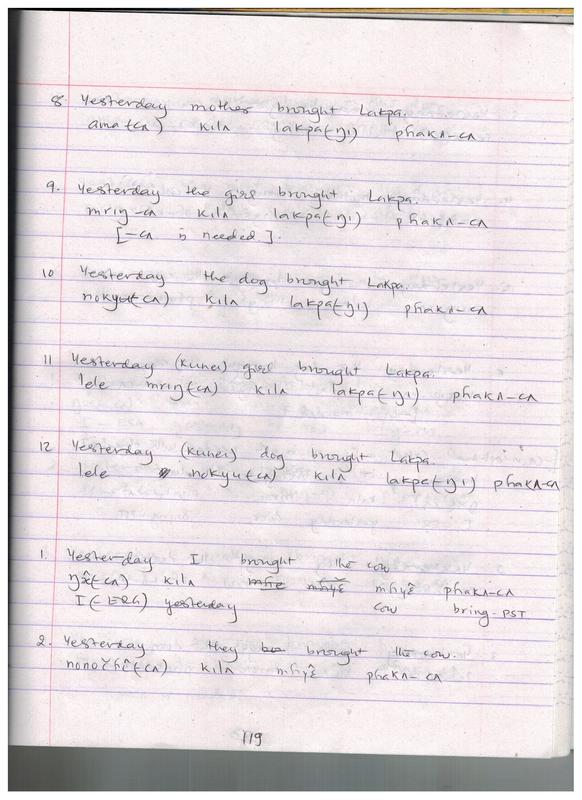 8 Yesterday mother brought Lakpa.
ama(-cʌ) kilʌ lakpa(-ŋi) phakʌ-cʌ
9. Yesterday the girl brought Lakpa.
mriŋ-cʌ kilʌ lakpa(-ŋi) phakʌ-cʌ
[-cʌ is needed].
10 Yesterday the dog brought Lakpa.
nokyu(-cʌ) kilʌ lakpa(-ŋi) phakʌ-cʌ
11 Yesterday (kunei) girl brought Lakpa.
lele mriŋ(-cʌ) kilʌ lakpa(-ŋi) phakʌ-cʌ
12 Yesterday (kunei) dog brought Lakpa.
lele nokyu(-cʌ) kilʌ lakpa(-ŋi) phakʌ-cʌ
1. Yesterday I brought the cow
kilʌ mhyɛ̂ phakʌ-cʌ
I(-ERG) yesterday cow bring-PST
2. Yesterday they brought the cow.
kilʌ mhyɛ̂ phakʌ-cʌ
119